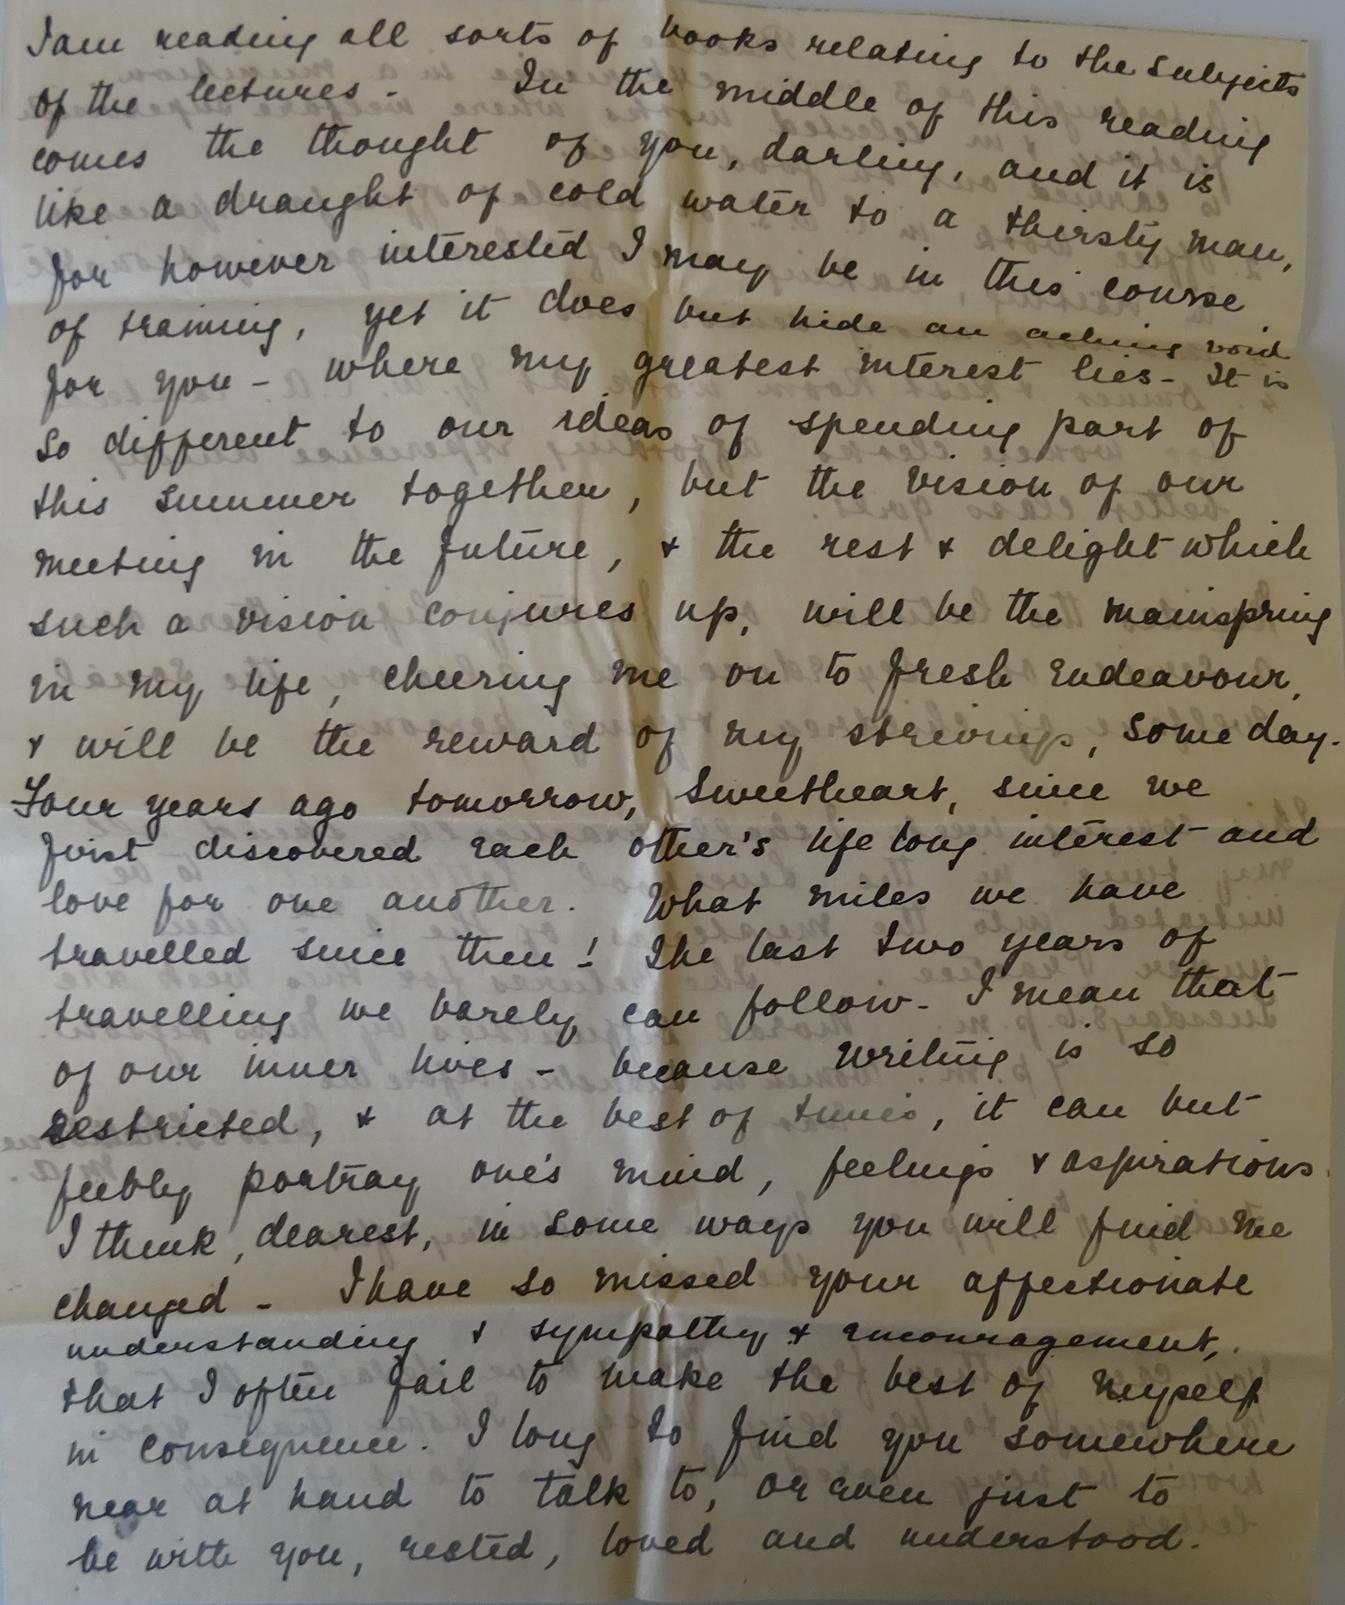 I am reading all sorts of books relating to the subjects
of the lectures - In the middle of this reading
comes the thought of you, darling, and it is
like a draught of cold water to a thirsty man,
for however interested I may be in this course
of training, yet it does but hide an aching void
for you - where my greatest interest lies - It is
so different to our ideas of spending part of
this summer together, but the vision of our
meeting in the future, & the rest & delight which
such a vision conjures up, will be the mainspring
in my life, cheering me on to fresh endeavour,
& will be the reward of my strivings, some day.
Four years ago tomorrow, Sweetheart, since we
first discovered each other's life long interest and
love for one another. What miles we have
travelled since then! The last two years of
travelling we barely can follow - I mean that
of our inner lives - because writing is so
restricted, & at the best of times, it can but
feebly portray one's mind, feelings & aspirations.
I think, dearest, in some ways you will find me
changed - I have so missed your affectionate
understanding & sympathy & encouragement,
that I often fail to make the best of myself
in consequence. I long to find you somewhere
near at hand to talk to, or even just to
be with you, rested, loved and understood.